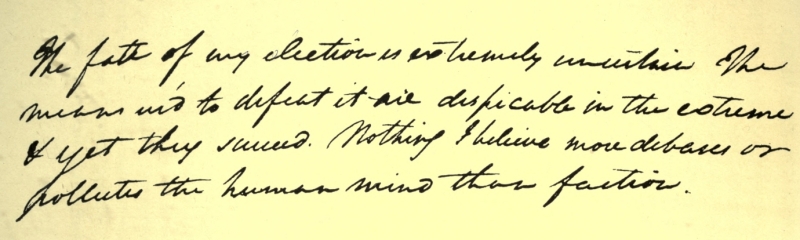 The fate of my election is extremely uncertain The
means us'd to defeat it are despicable in the extreme
& yet they succeed. Nothing I believe more debases or
pollutes the human mind than faction.